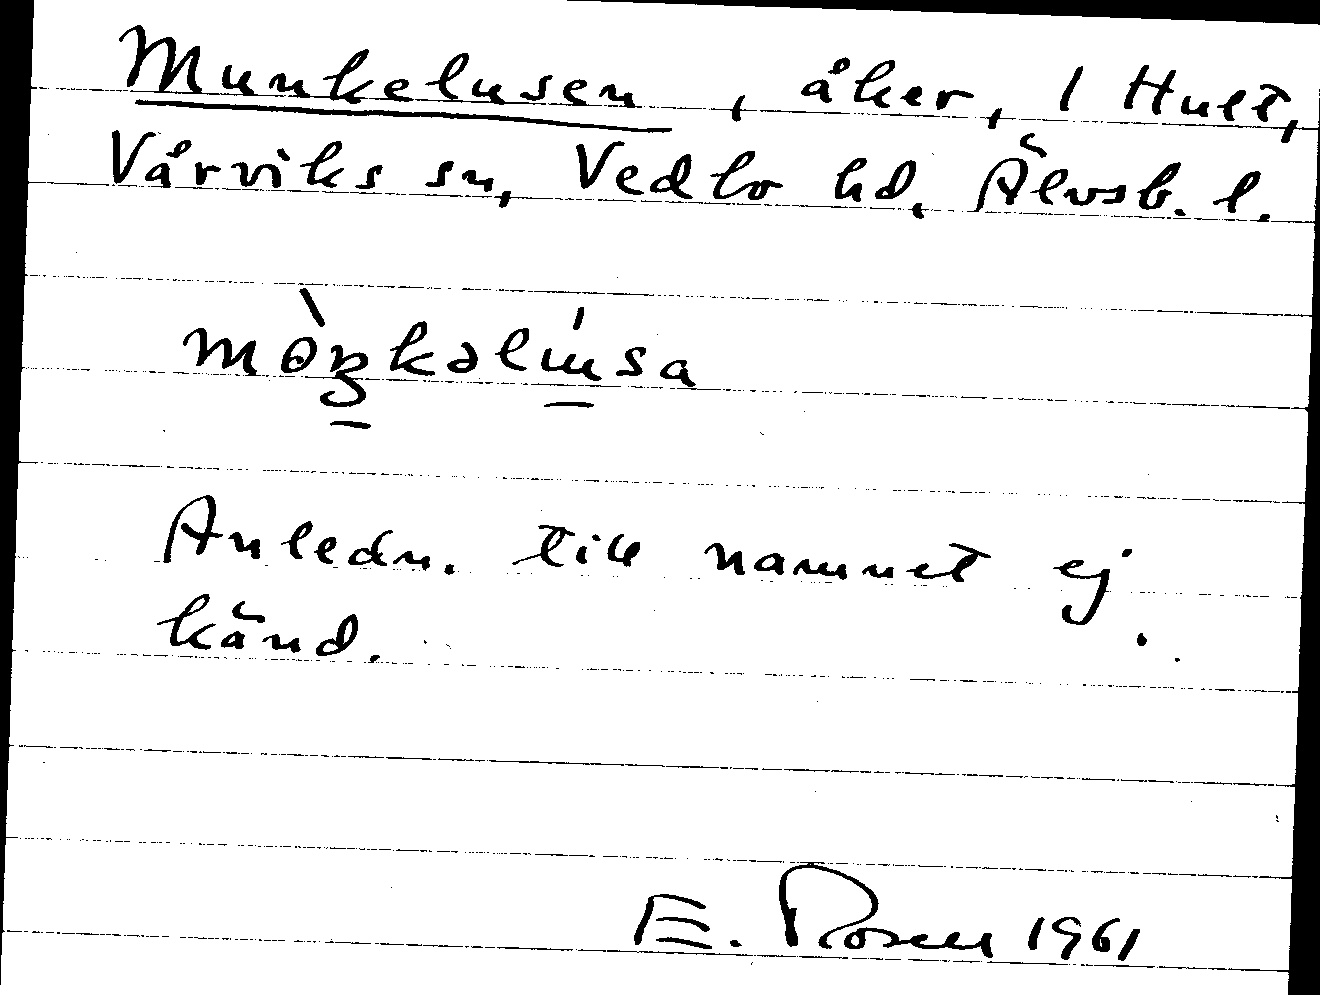 Munkelusen, åker, 1 Hult,
Vårviks sn, Vedbo hd, Älvsb. l.
Anledn. till namnet ej
känd.
E. Rosen 1961